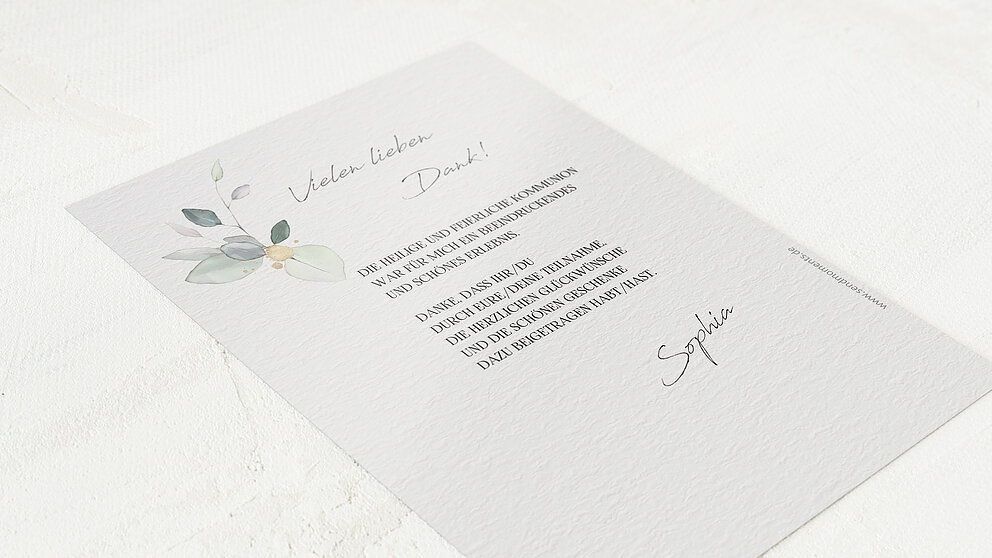 Vielen lieben
Dank!
DIE HEILIGE UND FEIERLICHE KOMMUNION
WAR FÜR MICH EIN BEEINDRUCKENDES
UND SCHÖNES ERLEBNIS.
DANKE, DASS IHR/DU
DURCH EURE/DEINE TEILNAHME,
DIE HERZLICHEN GLÜCKWÜNSCHE
UND DIE SCHÖNEN GESCHENKE
DAZU BEIGETRAGEN HABT/HAST.
Sophia
www.sendmoments.de